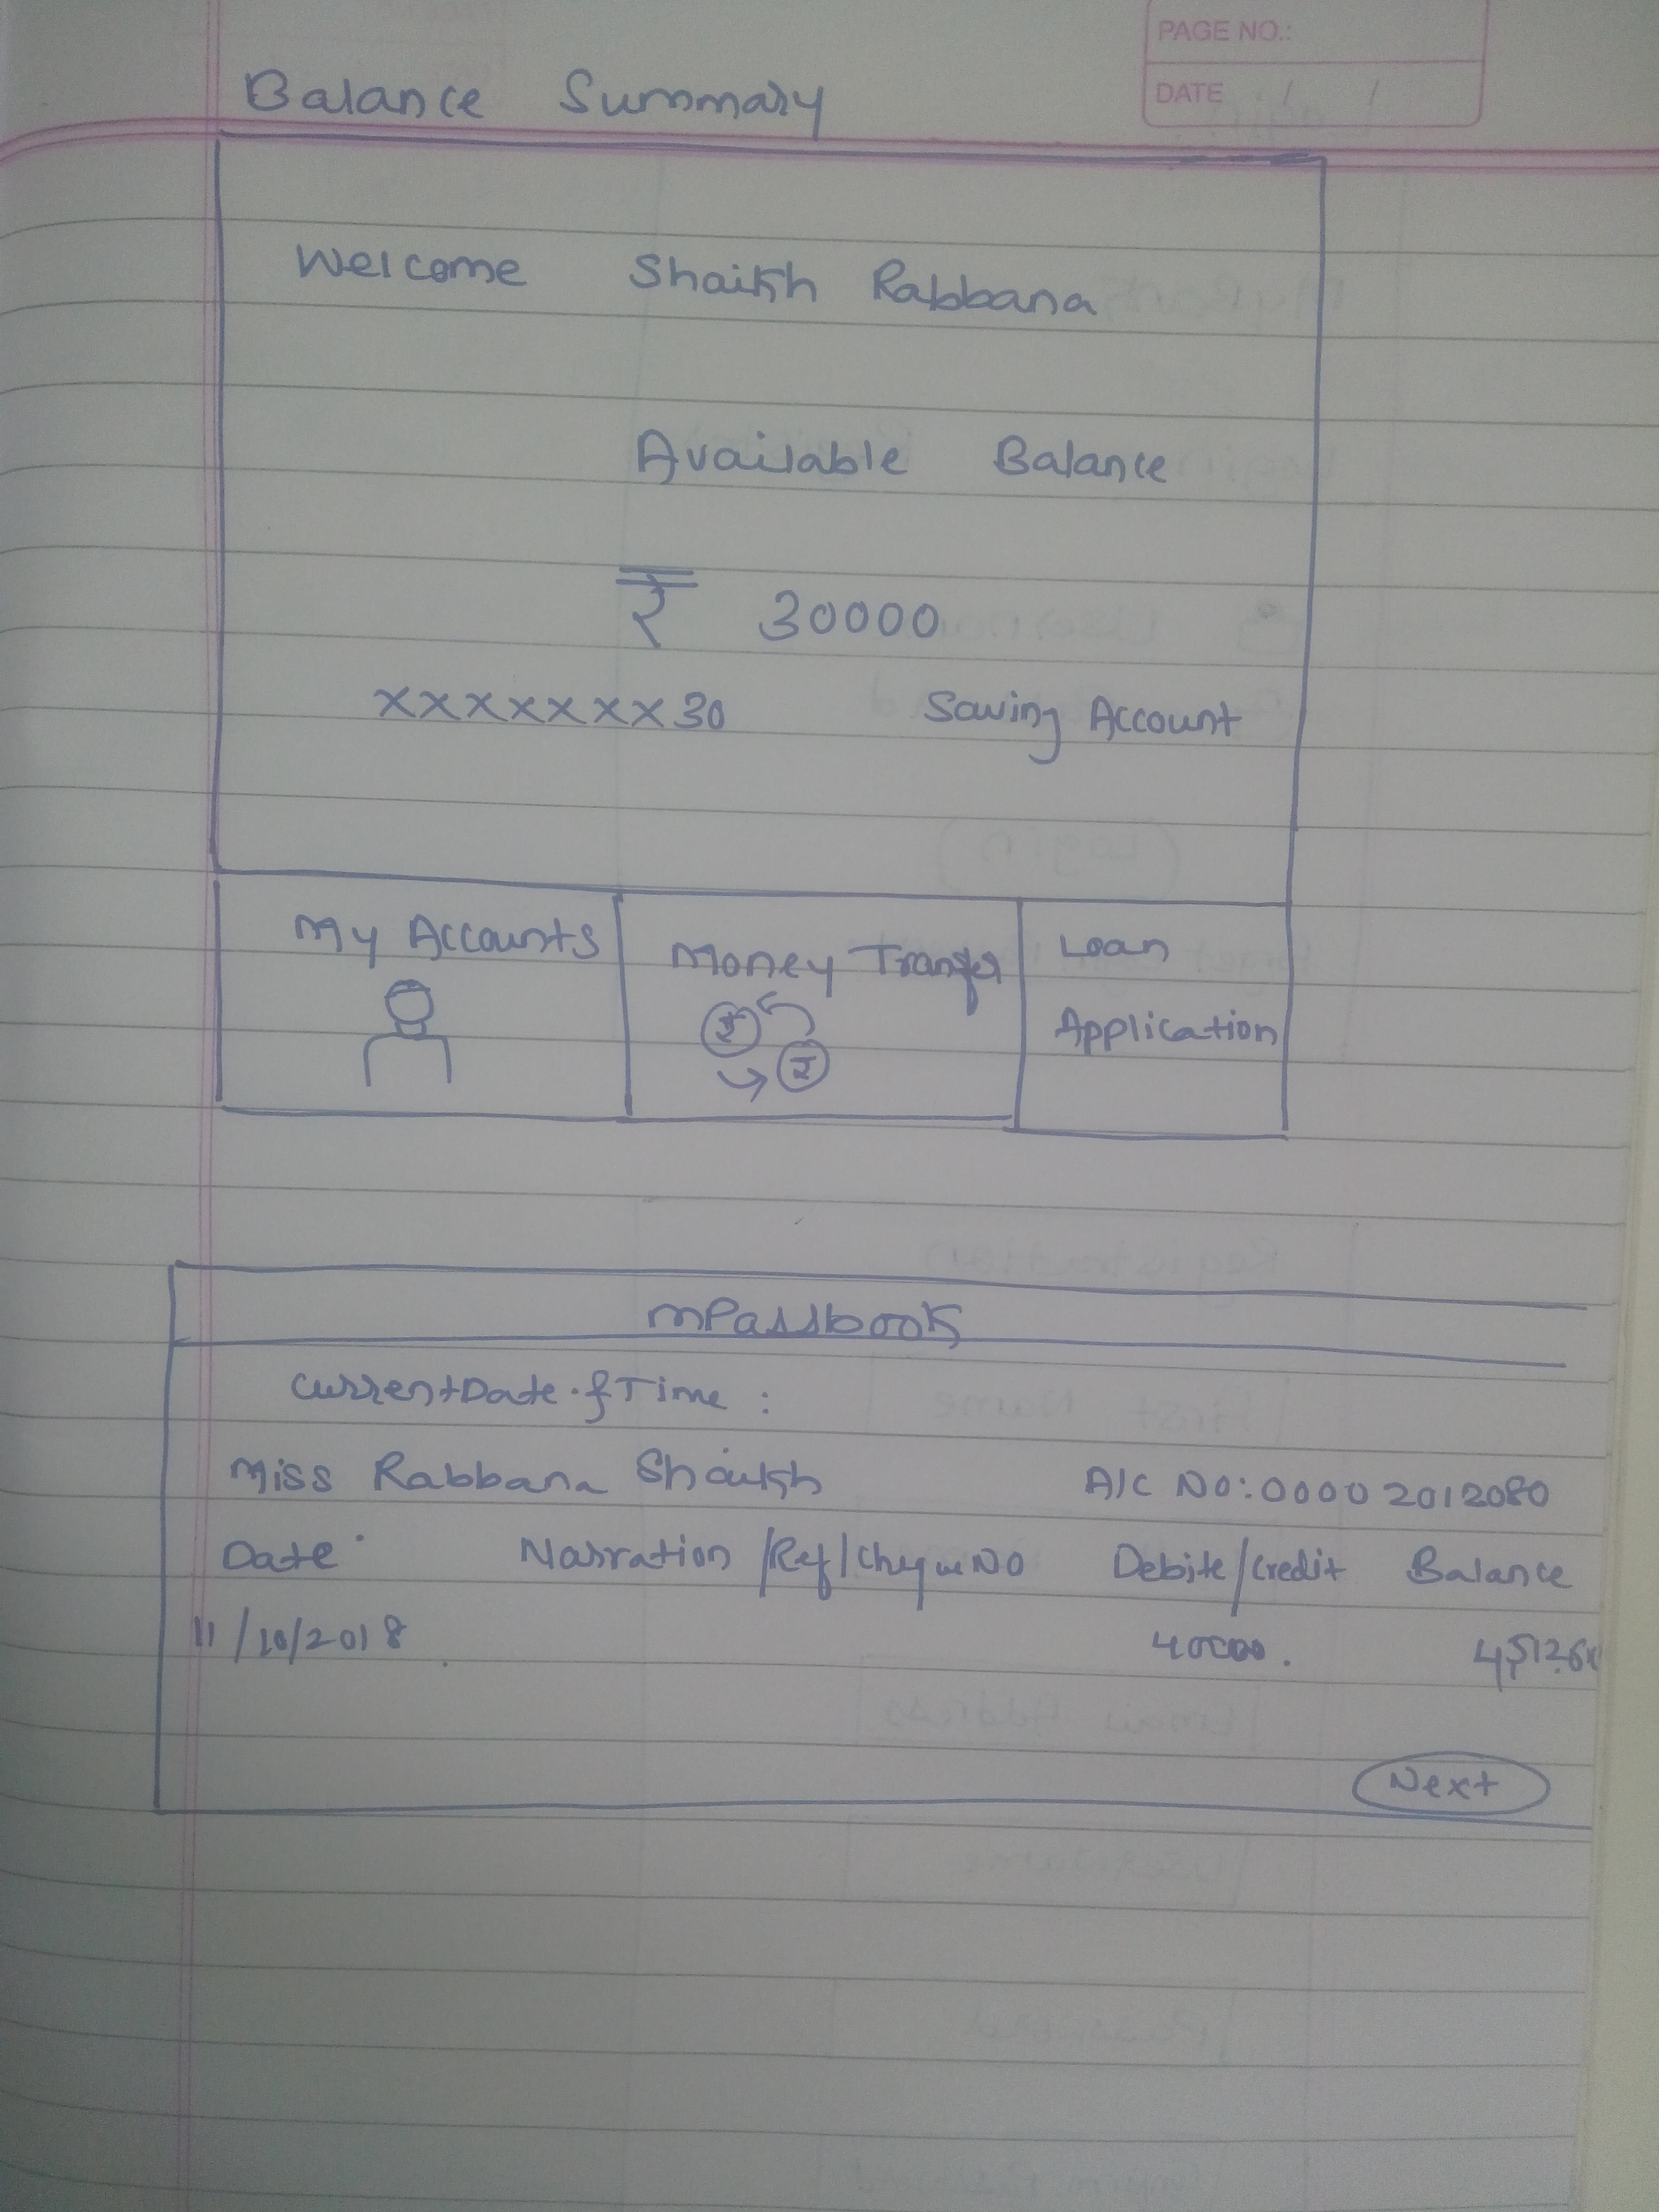 PAGE NO.:
DATE / /
Balance Summary
Welcome Shaikh Rabbana
Available Balance
₹ 30000
xxxxxxx30 Saving Account
My Accounts
Money Tranfer
₹
₹
Loan
Application
mPassbook
CurrentDate & Time :
Miss Rabbana Shaikh A/C No:0000 2012080
Date Narration /Ref/Cheque NO Debite/Credit Balance
11/10/2018 40000.
Next